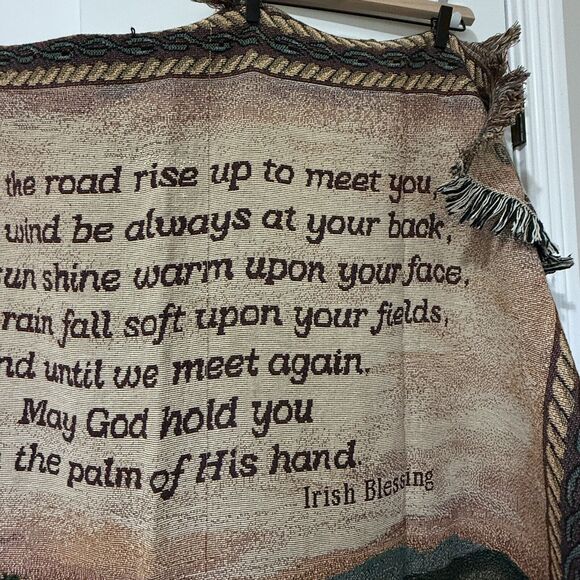 the road rise up to meet you,
wind be always at your back,
sun shine warm upon your face,
rain fall soft upon your fields,
and until we meet again.
May God hold you
the palm of His hand.
Irish Blessing